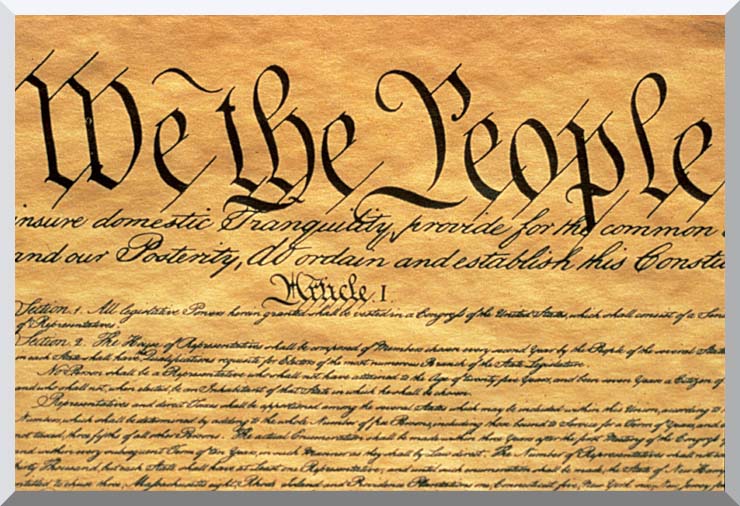 We the People
insure domestic Tranquility, provide for the common
and our Posterity, do ordain and establish this Constitu
Article I.
Section. 1. All legislative Powers herein granted shall be vested in a Congress of the United States, which shall consist of a Sena
of Representatives.
Section. 2. The House of Representatives shall be composed of Members chosen every second Year by the People of the several States
in each State shall have Qualifications requisite for Electors of the most numerous Branch of the State Legislature.
No Person shall be a Representative who shall not have attained to the Age of twenty five Years, and been seven Years a Citizen of
and who shall not, when elected, be an Inhabitant of that State in which he shall be chosen.
Representatives and direct Taxes shall be apportioned among the several States which may be included within this Union, according to
Numbers, which shall be determined by adding to the whole Number of free Persons, including those bound to Service for a Term of Years, and
not taxed, three fifths of all other Persons. The actual Enumeration shall be made within three Years after the first Meeting of the Congress
and within every subsequent Term of ten Years, in such Manner as they shall by Law direct. The Number of Representatives shall not
thirty Thousand, but each State shall have at Least one Representative; and until such enumeration shall be made, the State of New Hamp
entitled to chuse three, Massachusetts eight, Rhode Island and Providence Plantations one, Connecticut five, New York six, New Jersey